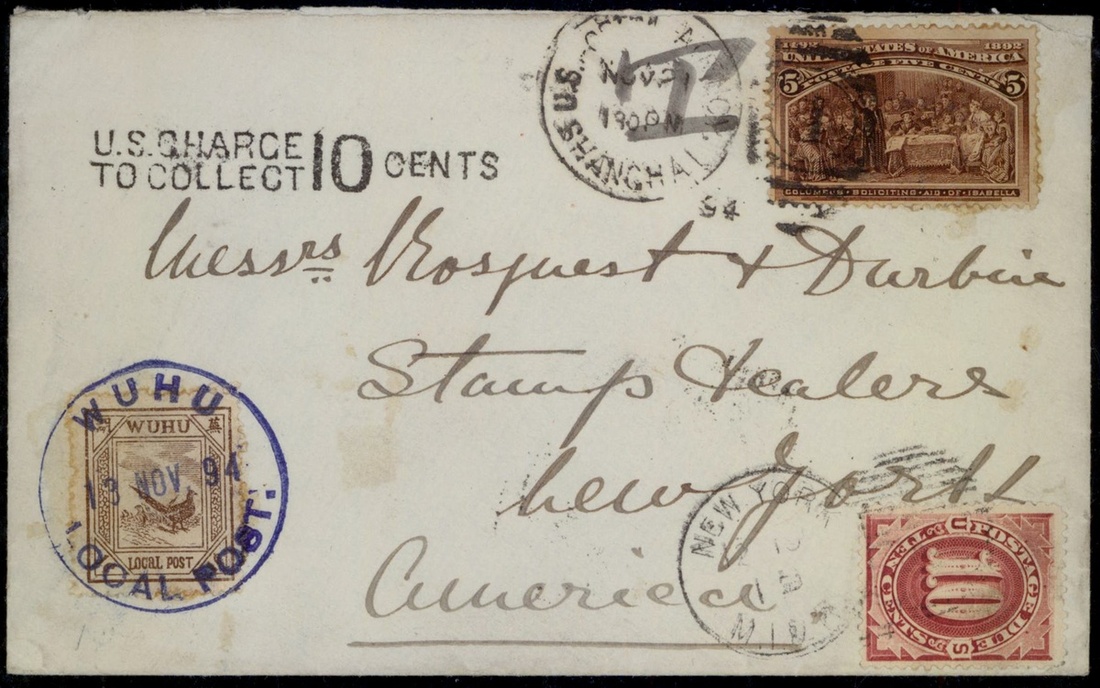 U.S. POSTAL AGENCY
SHANGHAI
NOV 21
1 30 PM
94
1492 1892
UNITED STATES OF AMERICA
5 POSTAGE FIVE CENTS 5
COLUMBUS SOLICITING AID OF ISABELLA
U.S. CHARGE
TO COLLECT 10 CENTS
Messrs Vosquest & Durbin
Stamp Dealers
New York
America
WUHU
13 NOV 94
LOCAL POST.
蕪
WUHU
LOCAL POST
NEW YORK
POSTAGE DUE
TEN CENTS
10